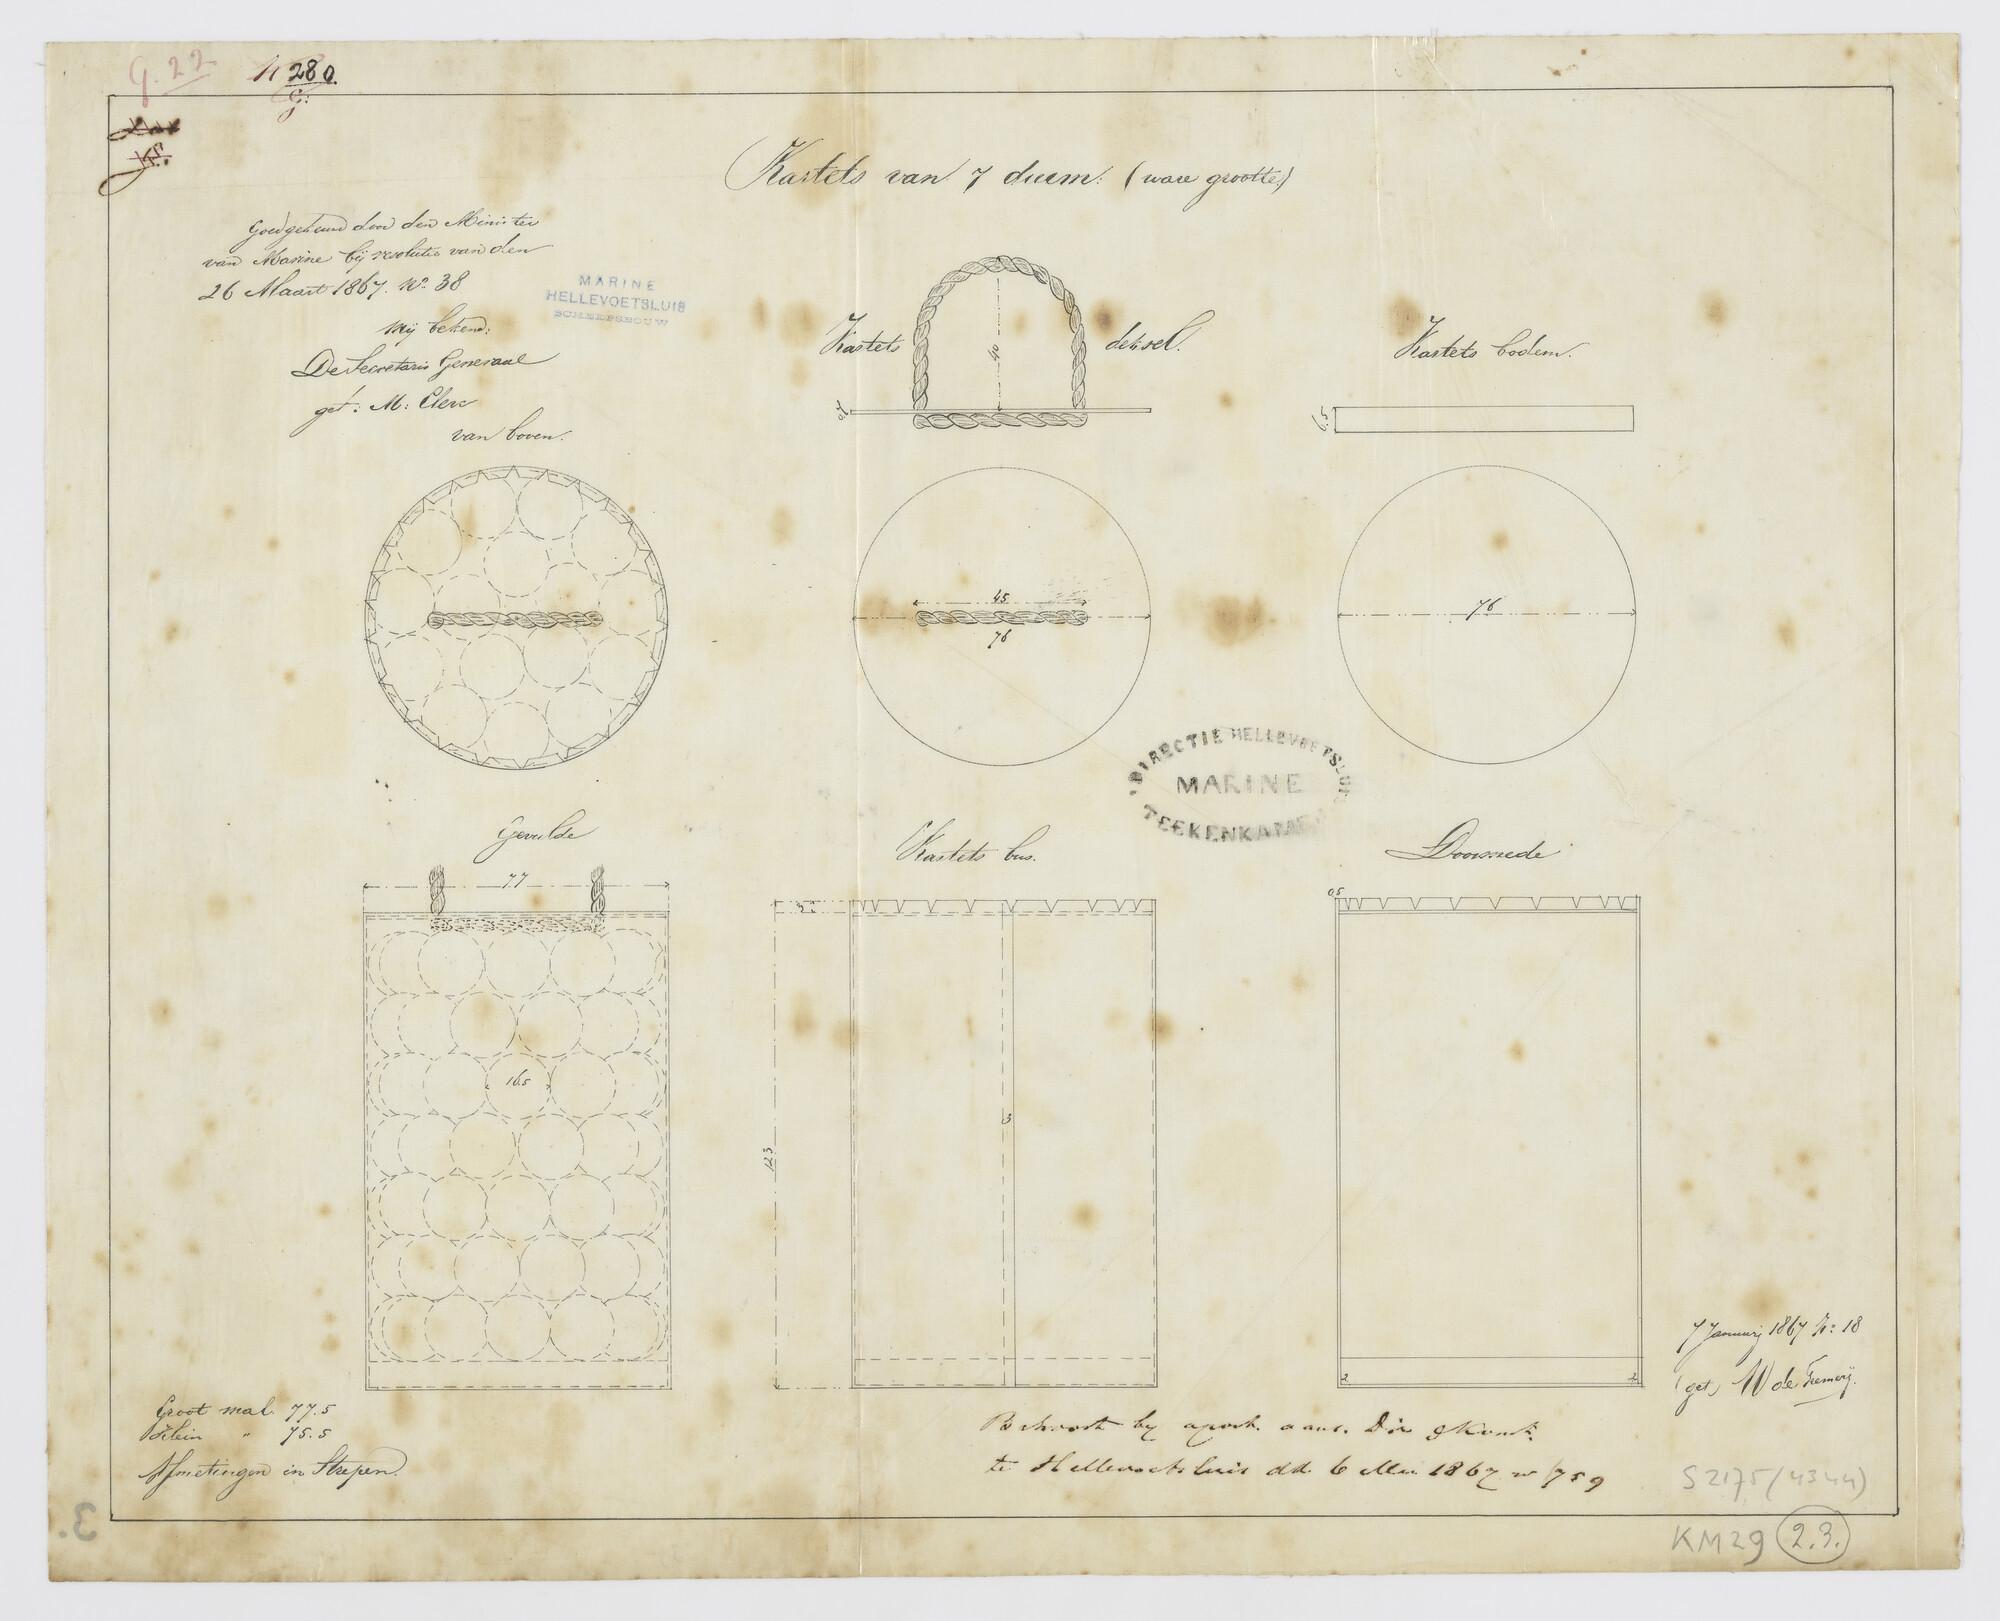 G. 22
N 280.
G:
Kartets van 7 duim: (ware grootte.)
Goedgekeurd door den Minister
van Marine bij resolutie van den
26 Maart 1867. No. 38
Mij bekend:
De Secretaris Generaal
get: M: Clerc
MARINE
HELLEVOETSLUIS
SCHEEPSBOUW
Kartets deksel.
40
0.7
Kartets bodem.
7.5
van boven.
45
76
76
DIRECTIE HELLEVOETSLUIS
MARINE
TEEKENKAMER
Gevulde
77
16.5
Kartets bus.
3
123
3
Doorsnede
0.5
2
2
7 Januarij 1867 No: 18
(get) W de Fremerij.
Groot mal. 77.5
Klein " 75.5
Afmetingen in Strepen.
Behoort by apost. aan. Dir &
te Hellevoetsluis dd. 6 Mei 1867 no 1759
S 2175 (4344)
KM29 2.3.
3.